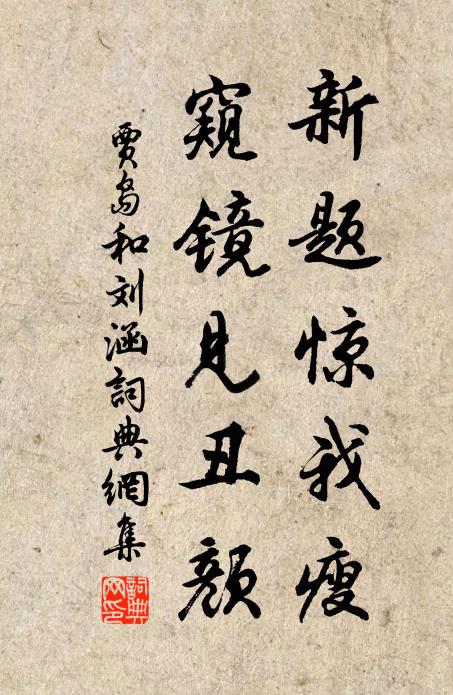 新题惊我瘦
窥镜见丑颜
贾岛和刘涵詞典網集
詞典网印